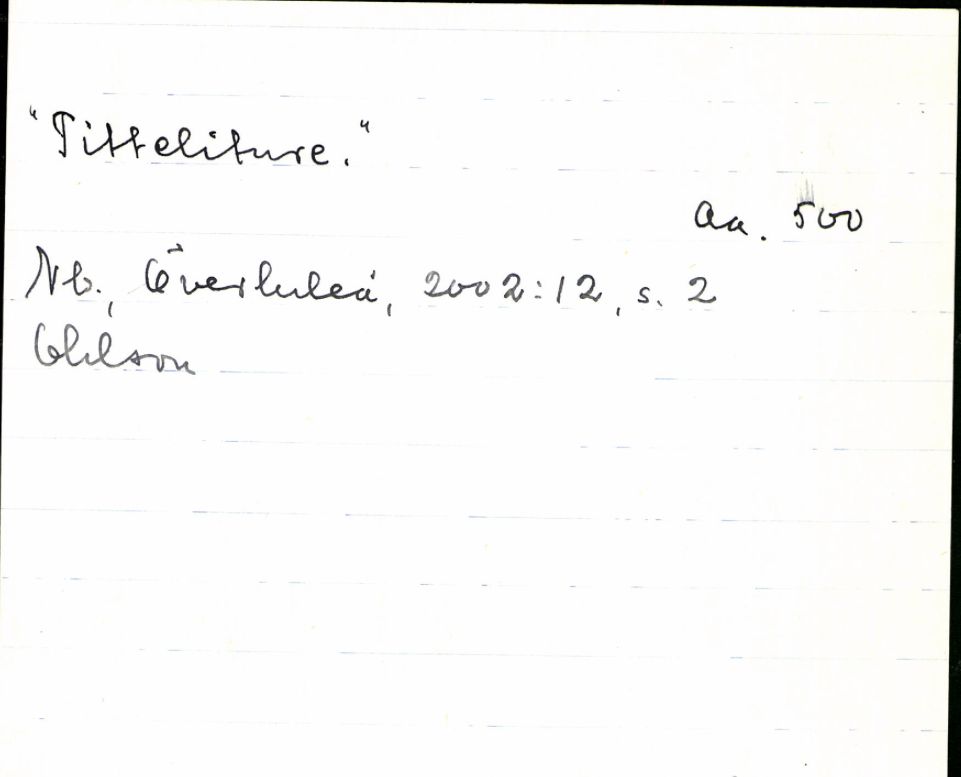 "Titteliture."
Aa. 500
Nb., Överluleå, 2002:12, s. 2
Ohlson